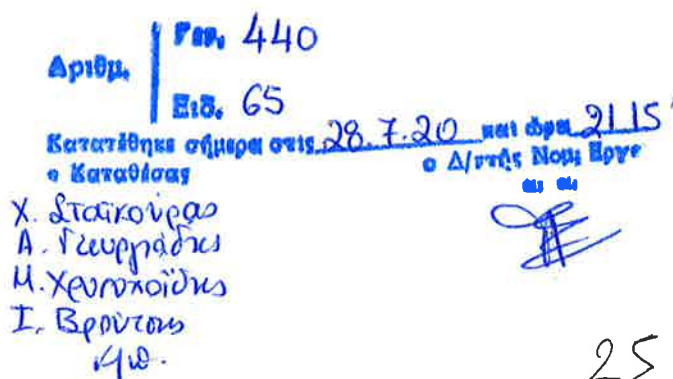 Αριθμ. Γεν. 440
Ειδ. 65
Κατατέθηκε σήμερα στις 28.7.20 και ώρα 21 15'
ο Καταθέσας ο Δ/ντής Νομ. Εργο
Χ. Σταϊκούρας
Α. Γεωργιάδης
Μ. Χρυσοχοΐδης
Ι. Βρούτσης
25